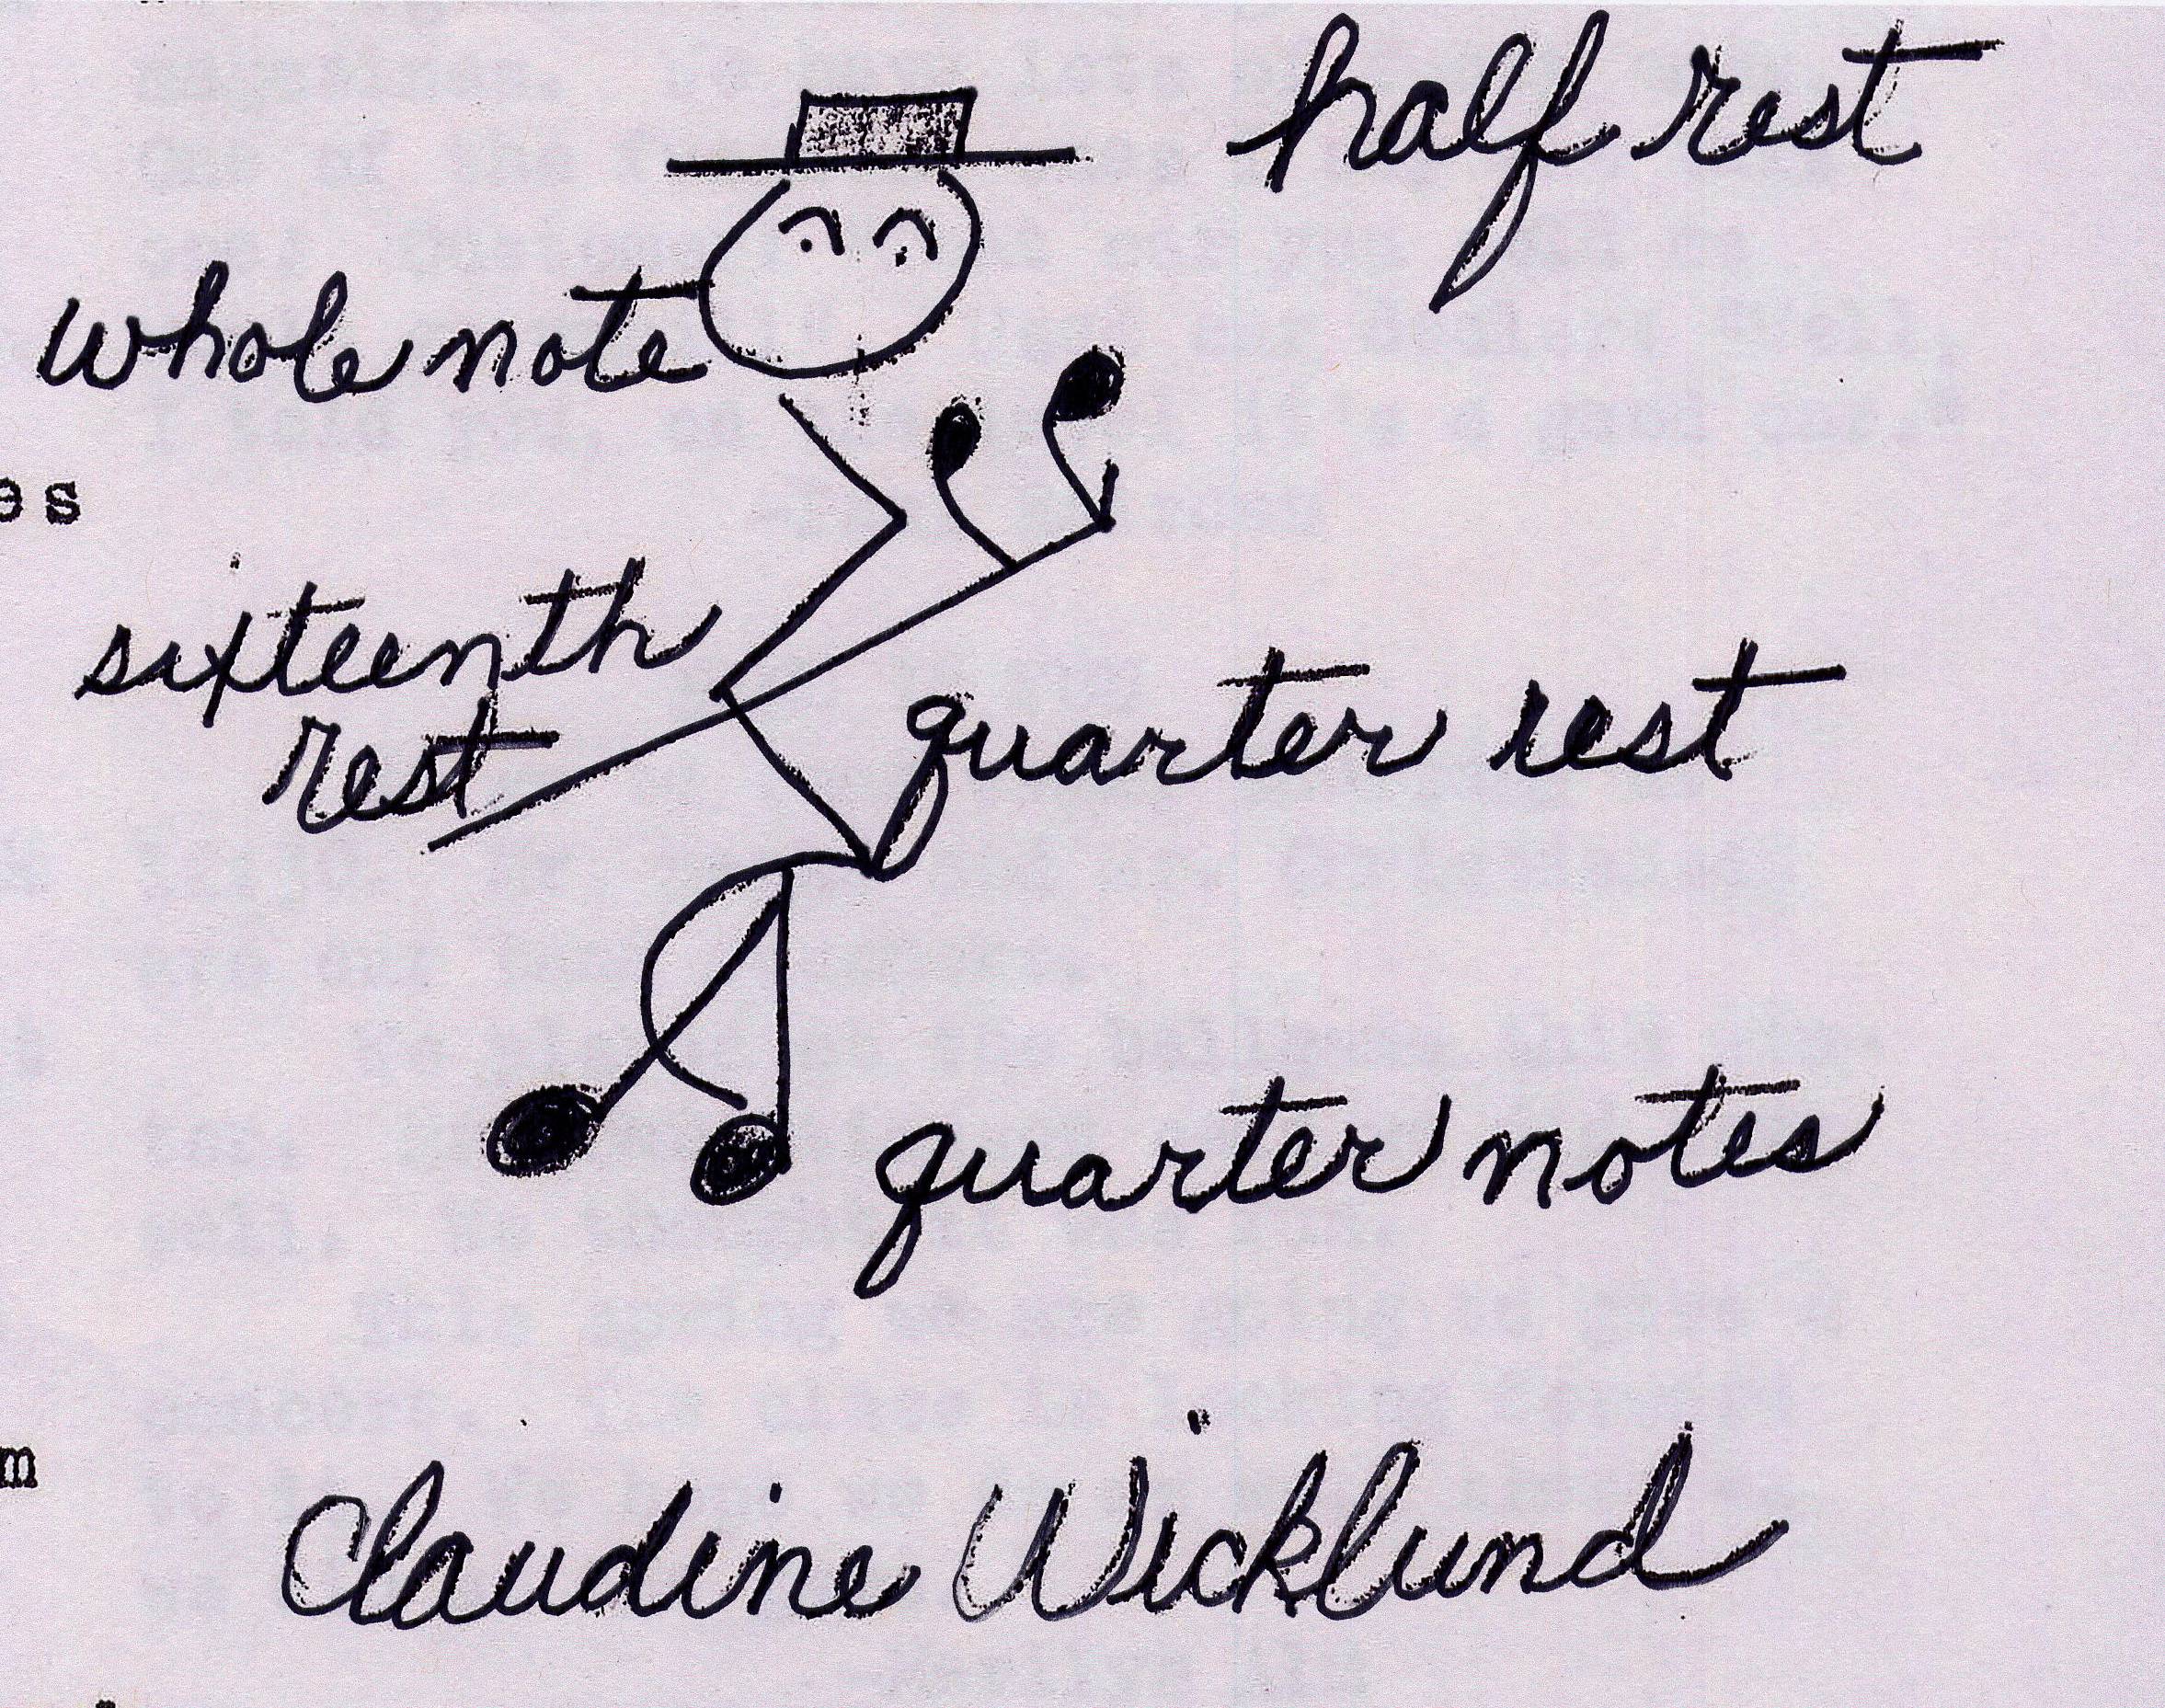 half rest
whole note
es
sixteenth
rest
quarter rest
quarter notes
m
Claudine Wicklund